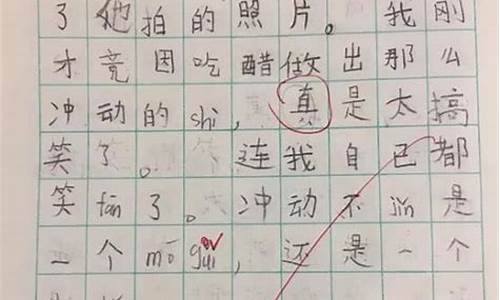 了他拍的照片。我刚
才竟因吃醋做出那么
冲动的shì,真是太搞
笑了。连我自己都
笑fān了。冲动不jǐn是
一个mō guǐ,还是一个